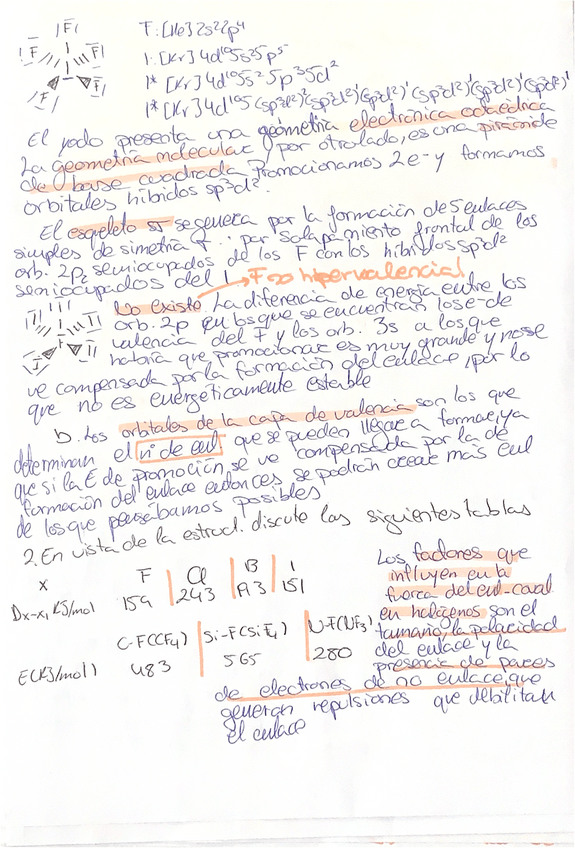 F: [He] 2s² 2p⁴
I: [Kr] 4d¹⁰ 5s² 5p⁵
I* [Kr] 4d¹⁰ 5s² 5p³ 5d²
I* [Kr] 4d¹⁰ 5(sp³d²)² (sp³d²)¹ (sp³d²)¹ (sp³d²)¹ (sp³d²)¹ (sp³d²)¹
El yodo presenta una geometría electrónica octaédrica
La geometría molecular, por otro lado, es una pirámide
de base cuadrada. Promocionamos 2e⁻ y formamos
orbitales híbridos sp³d².
El esqueleto σ se genera por la formación de 5 enlaces
simples de simetría σ por solapamiento frontal de los
orb. 2p semiocupados de los F con los híbridos sp³d²
semiocupados del I
→ F no hipervalencial
No existe. La diferencia de energía entre los
orb. 2p en los que se encuentran los e- de
valencia del F y los orb. 3s a los que
habría que promocionar es muy grande y no se
ve compensada por la formación del enlace, por lo
que no es energéticamente estable
b. Los orbitales de la capa de valencia son los que
determinan el nº de enl. que se pueden llegar a formar, ya
que si la E de promoción se ve compensada por la de
formación del enlace entonces se podrán crear más enl
de los que pensábamos posibles
2. En vista de la estruct. discute las siguientes tablas
X F Cl B I
Dx-x, KJ/mol 159 243 193 151
C-F(CF₄) Si-F(SiF₄) N-F(NF₃)
E(KJ/mol) 483 565 280
Los factores que
influyen en la
fuerza del enl-coval
en halógenos son el
tamaño, la polaridad
del enlace y la
presencia de pares
de electrones de no enlace, que
generan repulsiones que debilitan
el enlace